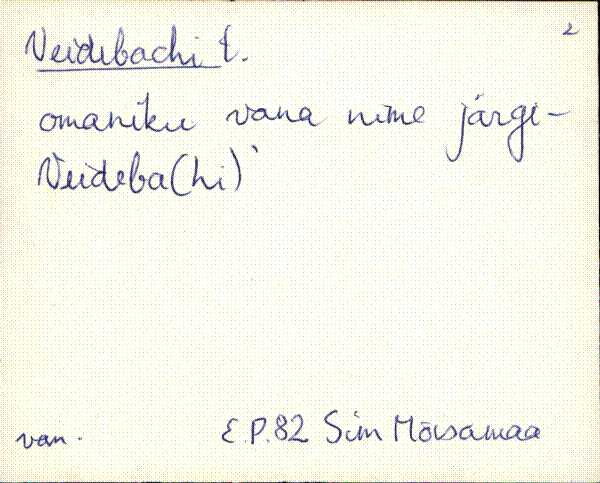 2
Veidebachi t.
omaniku vana nime järgi -
Veideba(hi)
van.
E.P.82 Sim Mõisamaa